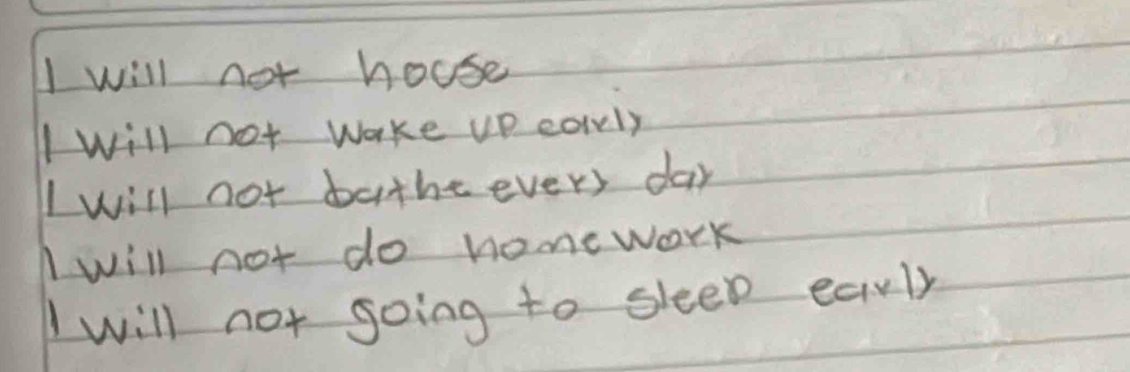 I will not house
I will not wake up early
I will not bathe every day
I will not do homework
I will not going to sleep early